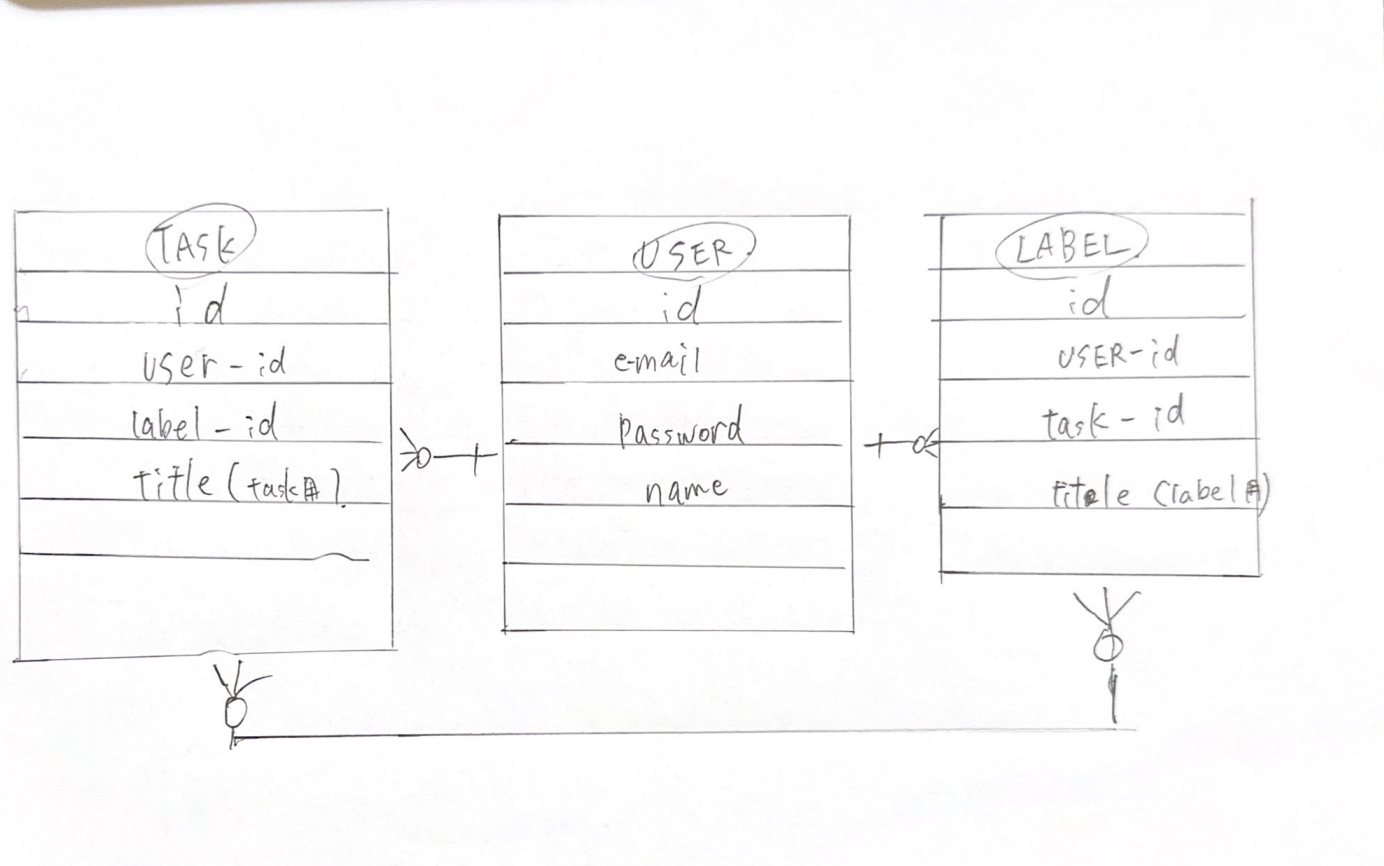 TASK
id
user-id
label-id
title (task用)
USER
id
e-mail
password
name
LABEL
id
USER-id
task-id
titole (label用)